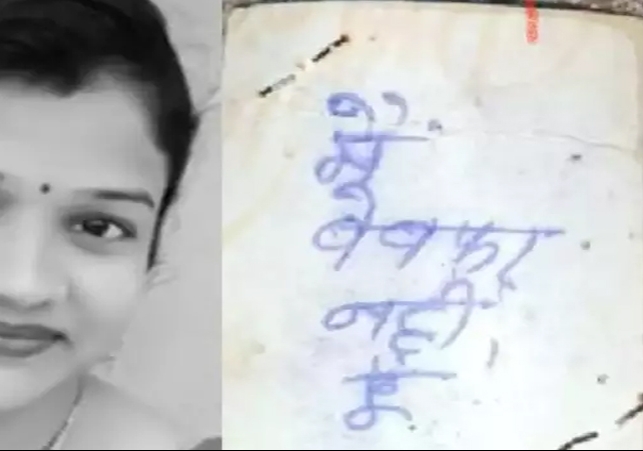 मैं
बेवफा
नहीं
हूँ